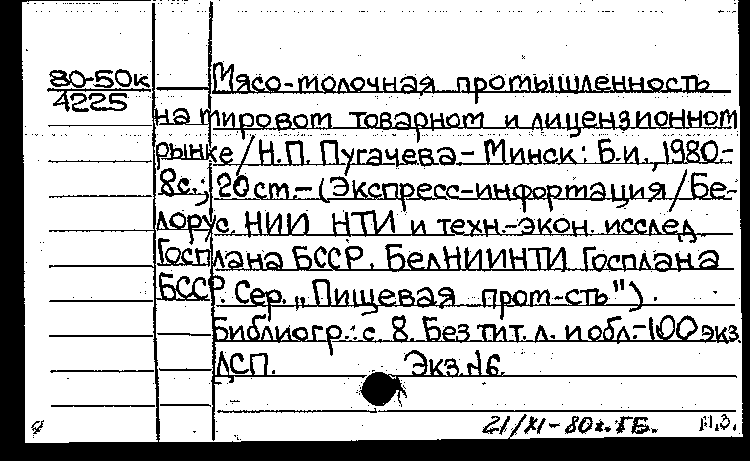 80-50к
4225
Мясо-молочная промышленность
на мировом товарном и лицензионном
рынке / Н.П. Пугачева. - Минск: Б.и., 1980.-
8с.; 20 см. - (Экспресс-информация / Бе-
лорус. НИИ НТИ и техн.-экон. исслед.
Госплана БССР. БелНИИНТИ Госплана
БССР. Сер. „Пищевая пром-сть").
Библиогр.: с. 8. Без тит. л. и обл. - 100 экз
ДСП. Экз. №6.
21/XI-80г. ГБ. М.З.